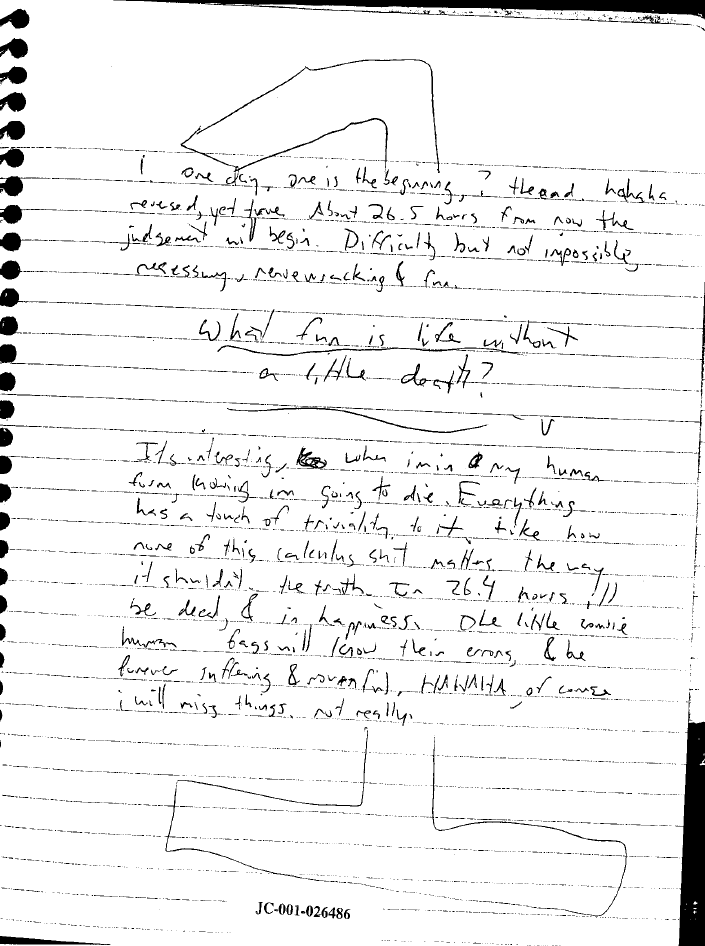 1. One day, one is the beginning, ? the end. hahaha.
reversed, yet true. About 26.5 hours from now the
judgement will begin. Difficulty but not impossible,
necessary, nervewracking & fun.
What fun is life without
a little death?
V
Its interesting, when im in my human
form, knowing im going to die. Everything
has a touch of triviality to it. Like how
none of this calculus shit matters the way
it shouldn't. the truth. In 26.4 hours i'll
be dead, & in happiness. The little zombie
human fags will know their errors, & be
forever suffering & mournful, HAHAHA, of course
i will miss things. not really.
JC-001-026486